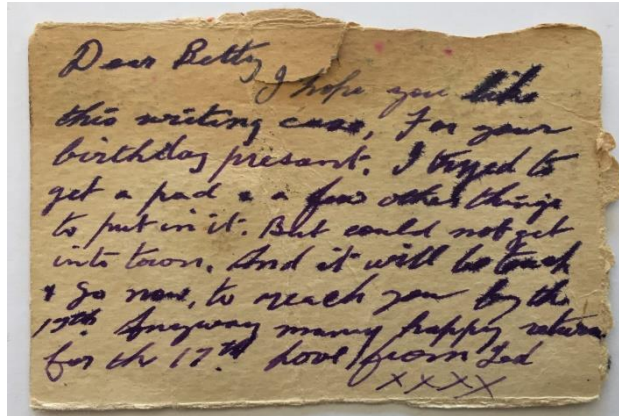 Dear Betty
I hope you like
this writing case, For your
birthday present. I tryed to
get a pad & a few other things
to put in it. But could not get
into town. And it will be touch
& go now, to reach you by the
17th. Anyway many happy returns
for the 17th. Love from Ted
xxxx